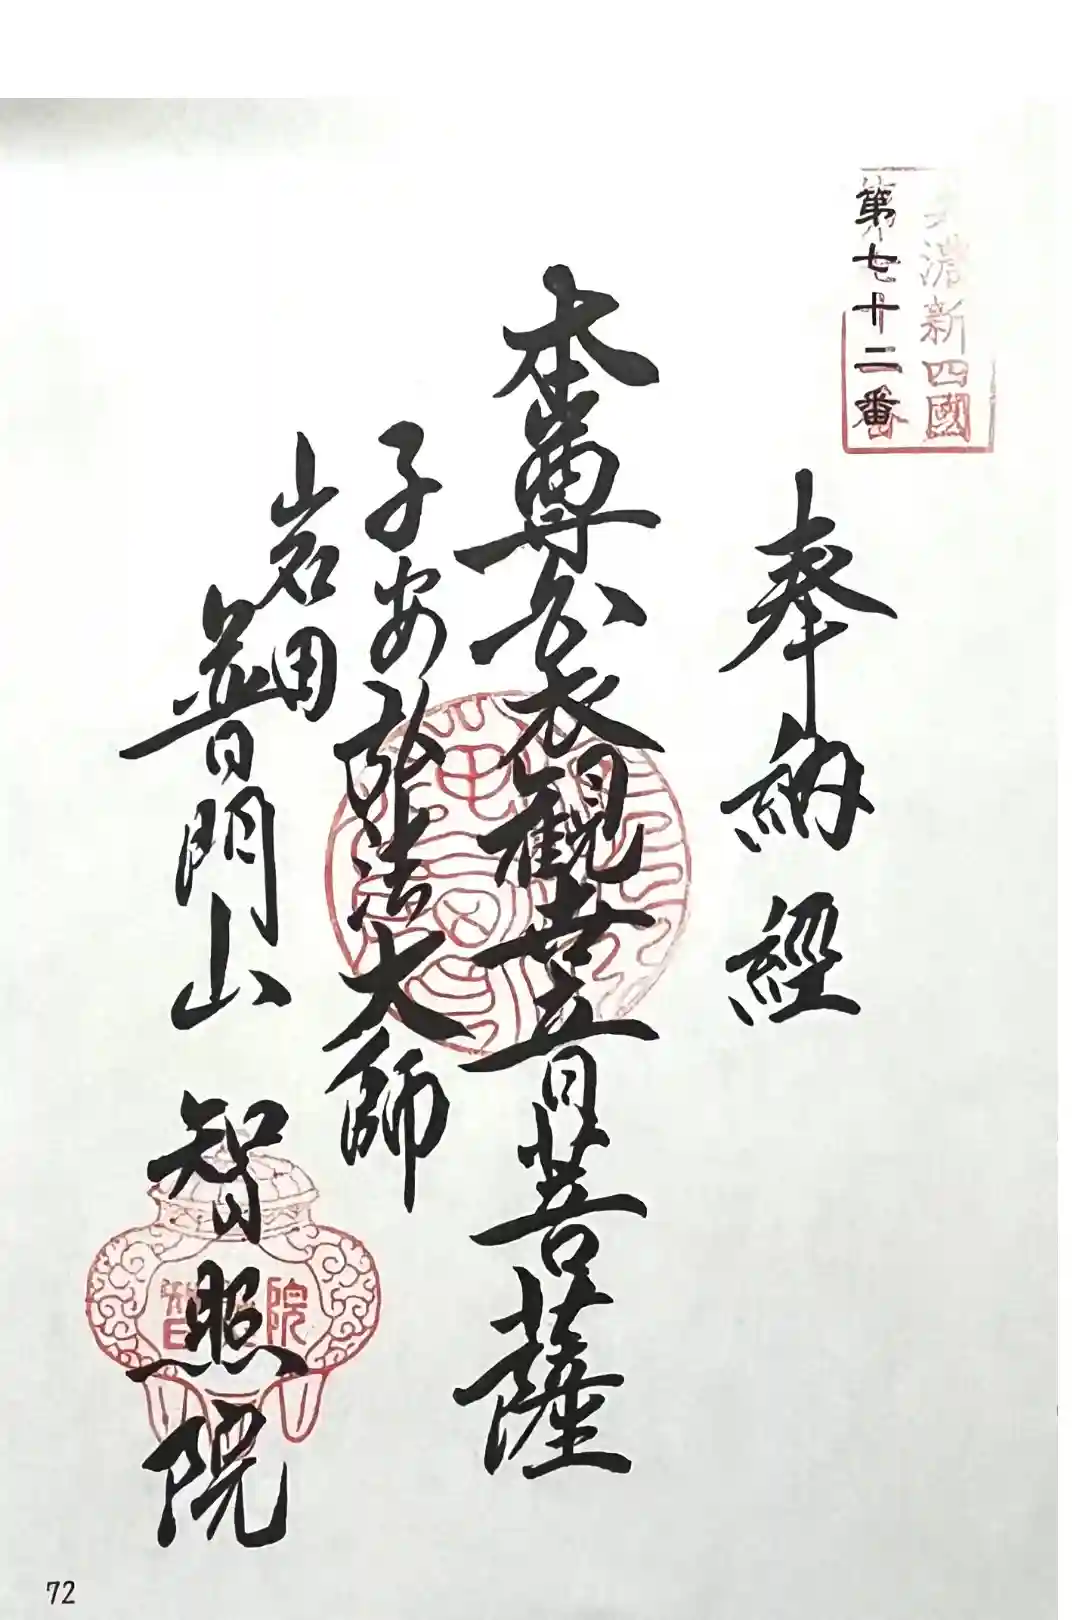 濃新四國
第七十二番
奉納經
本尊衣觀世音菩薩
子安弘法大師
岩田
普門山 智照院
智 院
72